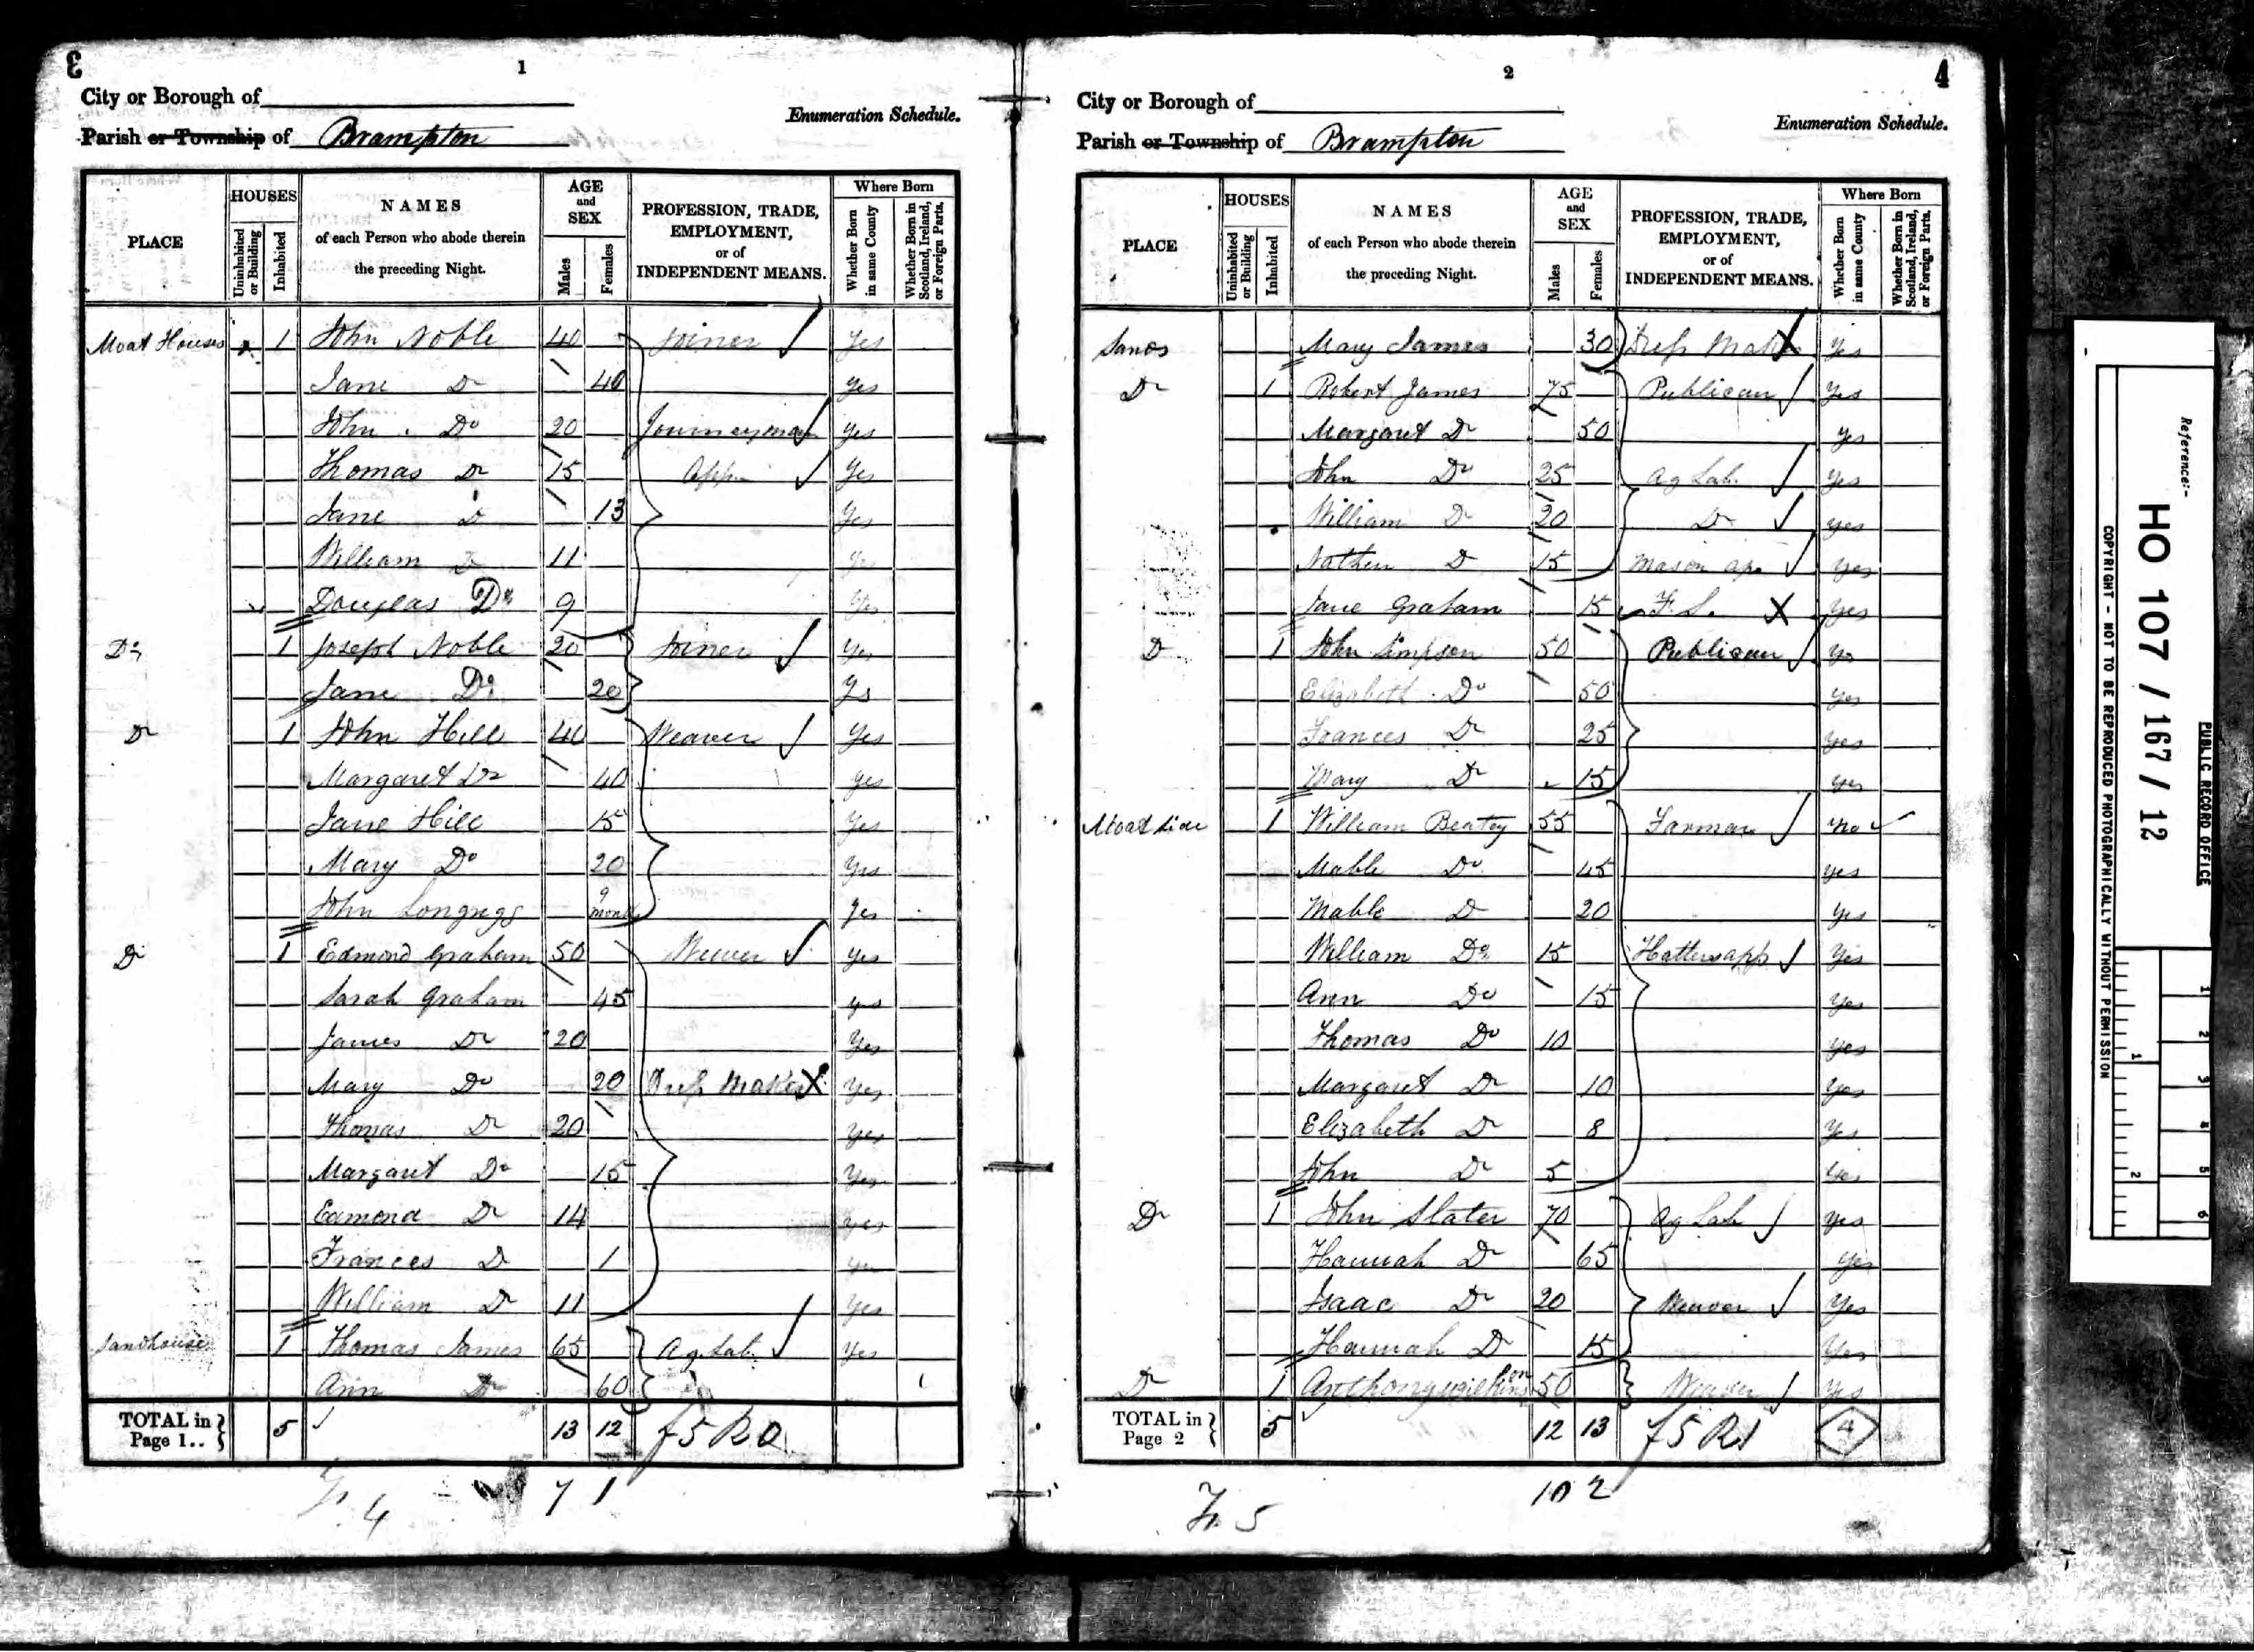 3
1
City or Borough of
Enumeration Schedule.
Parish or Township of Brampton
PLACE
HOUSES
Uninhabited or Building
Inhabited
NAMES
of each Person who abode therein
the preceding Night.
AGE
and
SEX
Males
Females
PROFESSION, TRADE,
EMPLOYMENT,
or of
INDEPENDENT MEANS.
Where Born
Whether Born in same County
Whether Born in Scotland, Ireland, or Foreign Parts.
Moat Houses 1 John Noble 40 Joiner Yes
Jane Do 40 Yes
John Do 20 Journeyman Yes
Thomas Do 15 App Yes
Jane Do 13 Yes
William Do 11 Yes
Douglas Do 9 Yes
Do 1 Joseph Noble 20 Joiner Yes
Jane Do 20 Yes
Do 1 John Hill 40 Weaver Yes
Margaret Do 40 Yes
Jane Hill 15 Yes
Mary Do 20 Yes
John 9 month Yes
Do 1 Edmond Graham 50 Weaver Yes
Sarah Graham 45 Yes
James Do 20 Yes
Mary Do 20 Dress Maker Yes
Thomas Do 20 Yes
Margaret Do 15 Yes
Edmond Do 14 Yes
Frances Do 1 Yes
William Do 11 Yes
Sandhouse 1 Thomas James 65 Ag. Lab. Yes
Ann Do 60
TOTAL in Page 1.. 5 13 12 f5 R0
4
7 1
2
4
City or Borough of
Enumeration Schedule.
Parish or Township of Brampton
PLACE
HOUSES
Uninhabited or Building
Inhabited
NAMES
of each Person who abode therein
the preceding Night.
AGE
and
SEX
Males
Females
PROFESSION, TRADE,
EMPLOYMENT,
or of
INDEPENDENT MEANS.
Where Born
Whether Born in same County
Whether Born in Scotland, Ireland, or Foreign Parts.
Mary James 30 Dress Maker Yes
Do 1 Robert James 75 Publican Yes
Margaret Do 50 Yes
John Do 25 Ag Lab. Yes
William Do 20 Do Yes
Nathen Do 15 Mason ap. Yes
Jane Graham 15 F. S. Yes
Do 1 John Simpson 50 Publican Yes
Elizabeth Do 50 Yes
Frances Do 25 Yes
Mary Do 15 Yes
Moat Side 1 William Beatey 55 Farmer No
Mable Do 45 Yes
Mable Do 20 Yes
William Do 15 Hatters app Yes
Ann Do 15 Yes
Thomas Do 10 Yes
Margaret Do 10 Yes
Elizabeth Do 8 Yes
John Do 5 Yes
Do 1 John Slater 70 Ag Lab Yes
Hannah Do 65 Yes
Isaac Do 20 Weaver Yes
Hannah Do 15 Yes
Do 1 Anthony Wilkinson 50 Weaver Yes
TOTAL in Page 2 5 12 13 f5 R1 4
5
10 2
Reference:-
HO 107 / 167 / 12
PUBLIC RECORD OFFICE
COPYRIGHT - NOT TO BE REPRODUCED PHOTOGRAPHICALLY WITHOUT PERMISSION
1 2 3 4 5 6
1 2